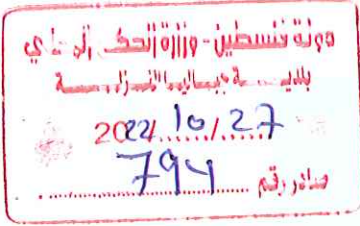 دولة فلسطين - وزارة الحكم المحلي
بلديـــة جباليا النزلـــة
2022/10/27
صادر رقم 794